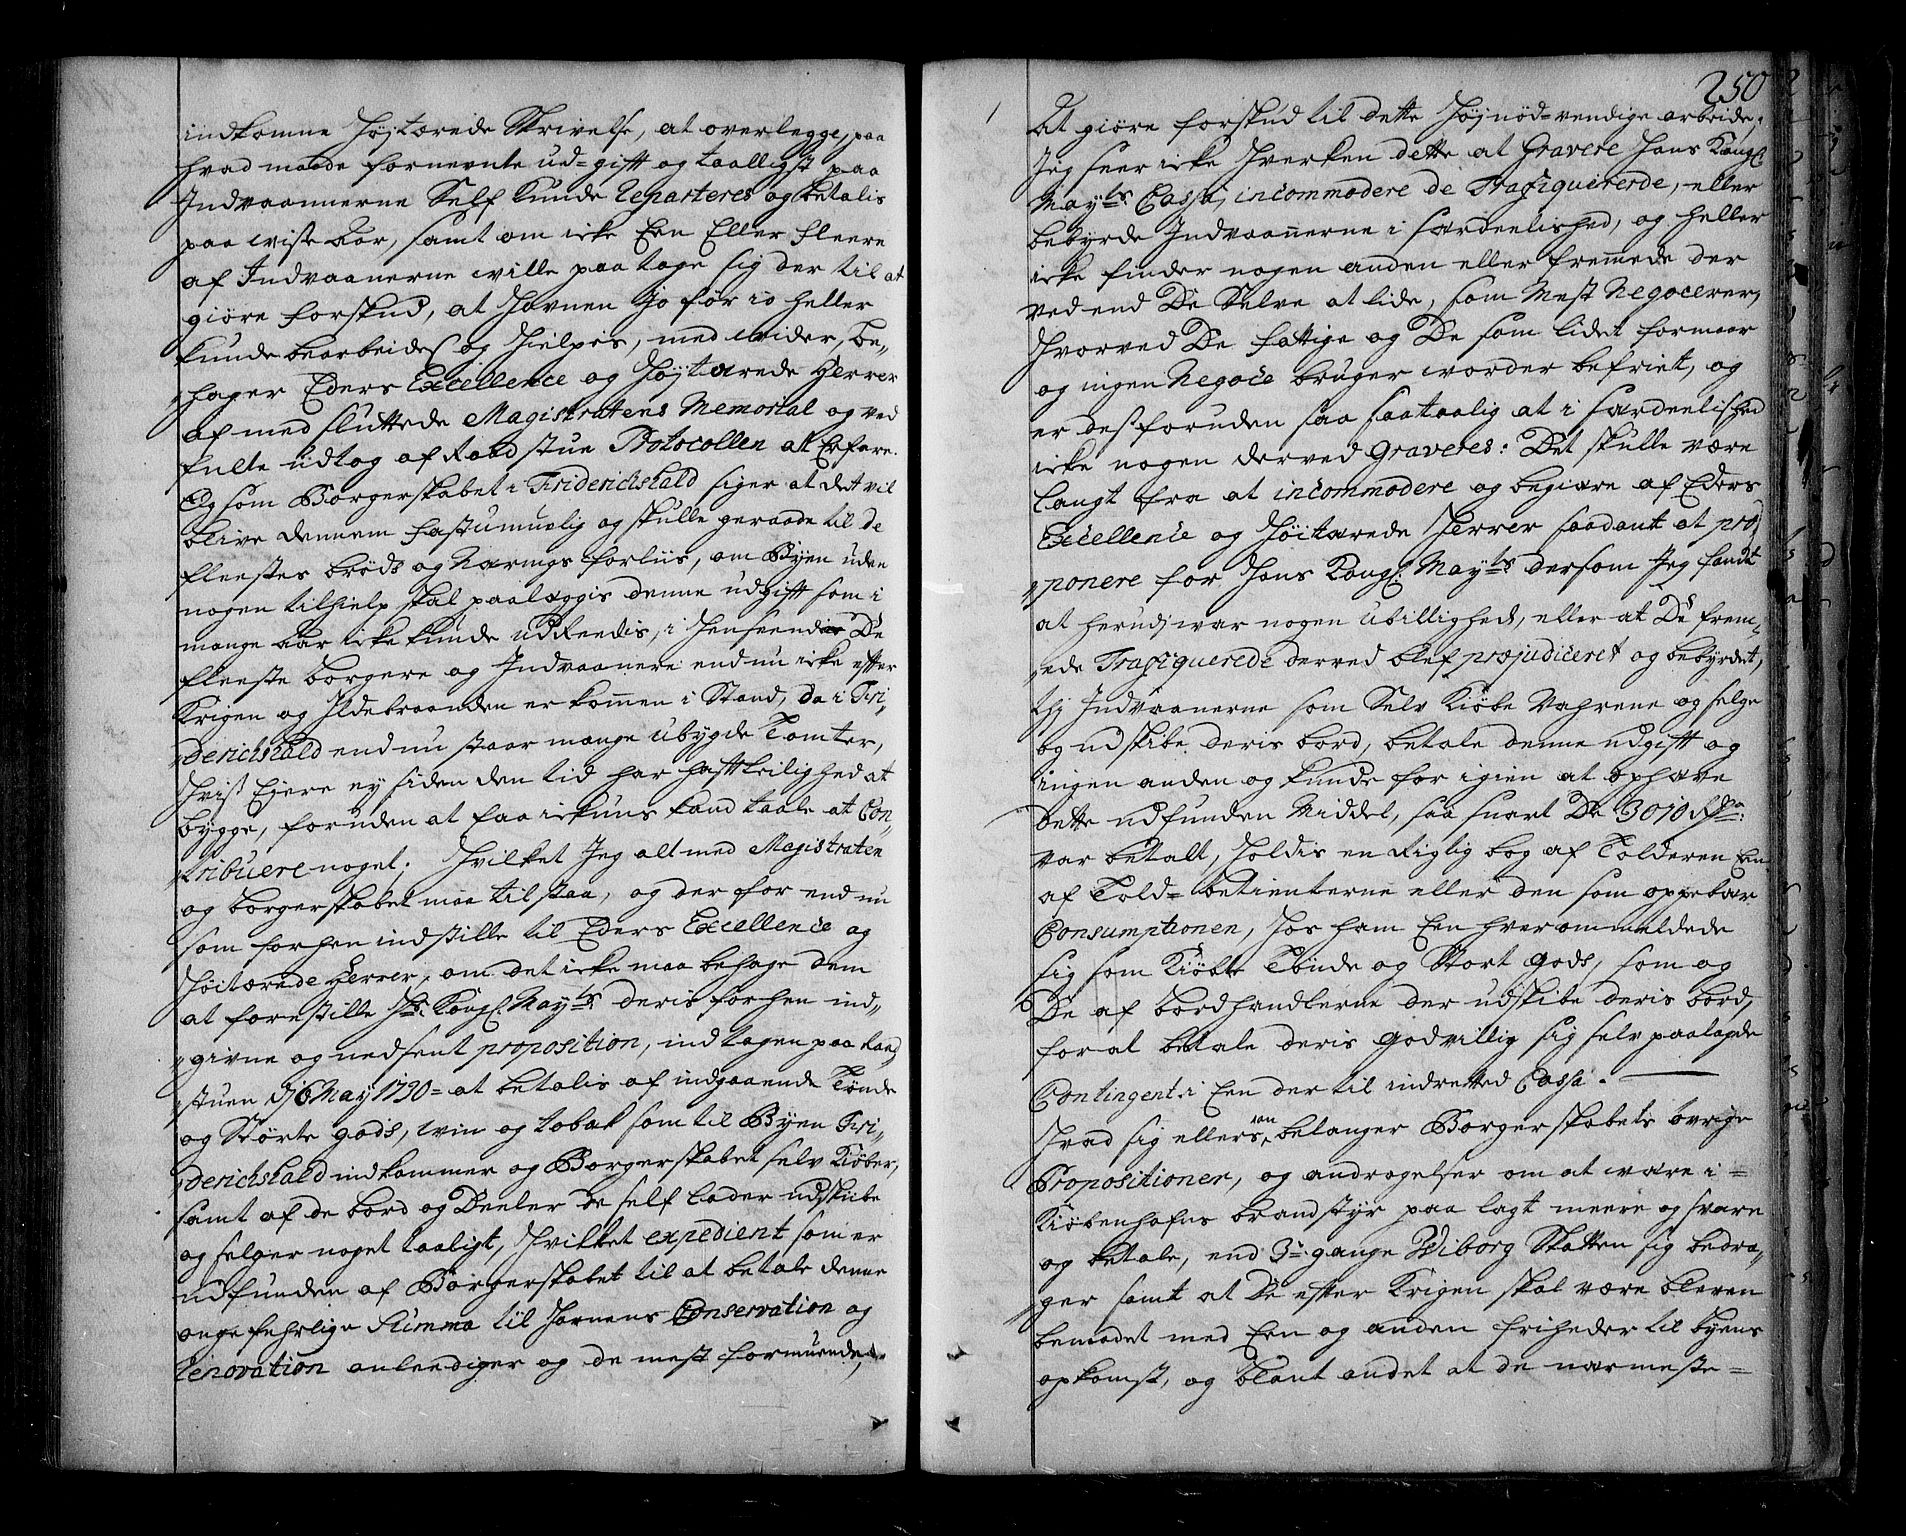 indkomne Høytærede Skrivelse, at overlegge, paa
hvad maade fornevnte ud-gift og taalligst paa
Indvaannerne Self kunde Reparteres og betalis
paa visse Aar, samt om icke Een Eller fleere
af Indvaanerne wille paa tage sig der til at
giøre forskud, at Havnen jo før io heller
kunde bearbeides og hielpis, med widere, be,,
,,hager Eders Excellence og Høytærede Herrer
af med sluttede Magistratens Memorial og ved
fulte udtog af Raad stue Protocollen at Erfare.
Og som Borgerskabet i Friderichshald siger at det vil
blive dennem fast umuelig og skulle geraade til de
fleestes brøds og Nærings forliis, om Byen uden
nogen tilhielp skal paalæggis denne udgift som i
mange Aar icke kunde udReedis, i henseende De
fleeste borgere og Indvaanere endnu icke efter
Krigen og Ildebranden er kommen i Stand, da i Fri,,
,,derichshald endnu staar mange ubygde Tomter,
hvis Eyere ey siden den tid har haft leilighed at
bygge, foruden at faa ickuns kand taale at Con,,
,,tribuere noget; Hvilket Jeg alt med Magistraten
og borgerskabet maa tilstaa, og der for end-nu
som forhen indstille til Eders Excellence og
Høitærede Herrer, om det icke maa behage dem
at forestille Hs: Kongl: Mayts deris forhen ind,,
,,givne og nedsent proposition, indtagen paa Raad
,,stuen d 16 May 1730 = at betalis af indgaaende Tønde
og Størte gods, win og tobak som til Byen Fri,,
,,derichshald indkommer og Borgerskabet selv Kiøber,
samt af de bord og Deeler de self lader udskibe
og selger noget taaligt, Hvilket expedient som er
udfunden af Borgerskabet til at betale denne
ongefehrlige Summa til Havnens Conservation og
Renovation anleediger og de mest formuende,
250
At giøre forskud til dette Høynød-vendige arbeide,
Jeg seer icke hverken dette at Gravere Hans Kongl:
Mayts Cassa, incommodere de Trafiquererde, eller
bebyrde Indvaannerne i særdeelished, og heller
icke finder nogen anden eller fremmede der
ved end De Selve at lide, som Mest Negocerer,
hvorved De fattige og De som lidet formaar
og ingen Negoce bruger worder befriet, og
er desforuden saa saataalig at i særdeelished
icke nogen derved Graveres: Det skulle være
langt fra at incommodere og begiære af Eders
Excellence og Høitærede Herrer saadant at pro,,
,,ponere for Hans Kongl: Mayts dersom Jeg fandt
at herudj war nogen ubillighed, eller at De frem,,
,,ede Trafiquerede derved blef præjudiceret og bebyrdet,
thj Indvaanerne som Selv Kiøbe Vahrene og selge
og udskibe deris bord, betale denne udgift og
ingen anden og kunde for igien at ophæve
dette udfunden Middel, saa snart De 3010 Rdr:
var betalt, Holdis en Rigtig bog af Tolderen Een
af Told-betienterne eller den som oppebær
Consumptionen, Hos ham Een hver ommeldede
sig som Kiøbte Tønde og Stort Gods, som og
De af bordhandlerne der udskibe deris bord,
for at betale deris godvillig sig selv paalagde
Contingent i Een der til indretted Cassa.
Hvad sig ellers an belanger Borgerskabets øvrige
Propositioner, og andragelser om at ware i-
Kiøbenhafns brandstyr paa lagt meere og svare
og betale, end 3de gange Wiborg Skatten sig bedra,,
ger samt at De efter Krigen skal være bleven
benaadet med Een og anden friheder til byens
opkomst, og blant andet at de nærmeste=